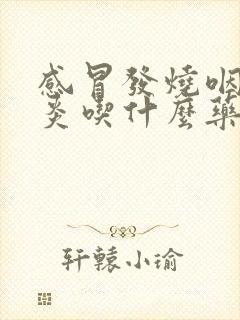 感冒發燒咽
炎喫什麼藥
轩辕小瑜